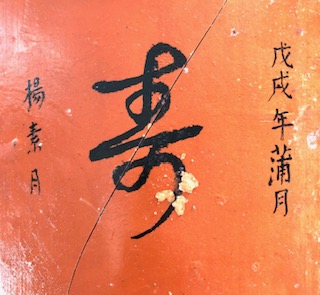 戊戌年蒲月
寿
楊素月